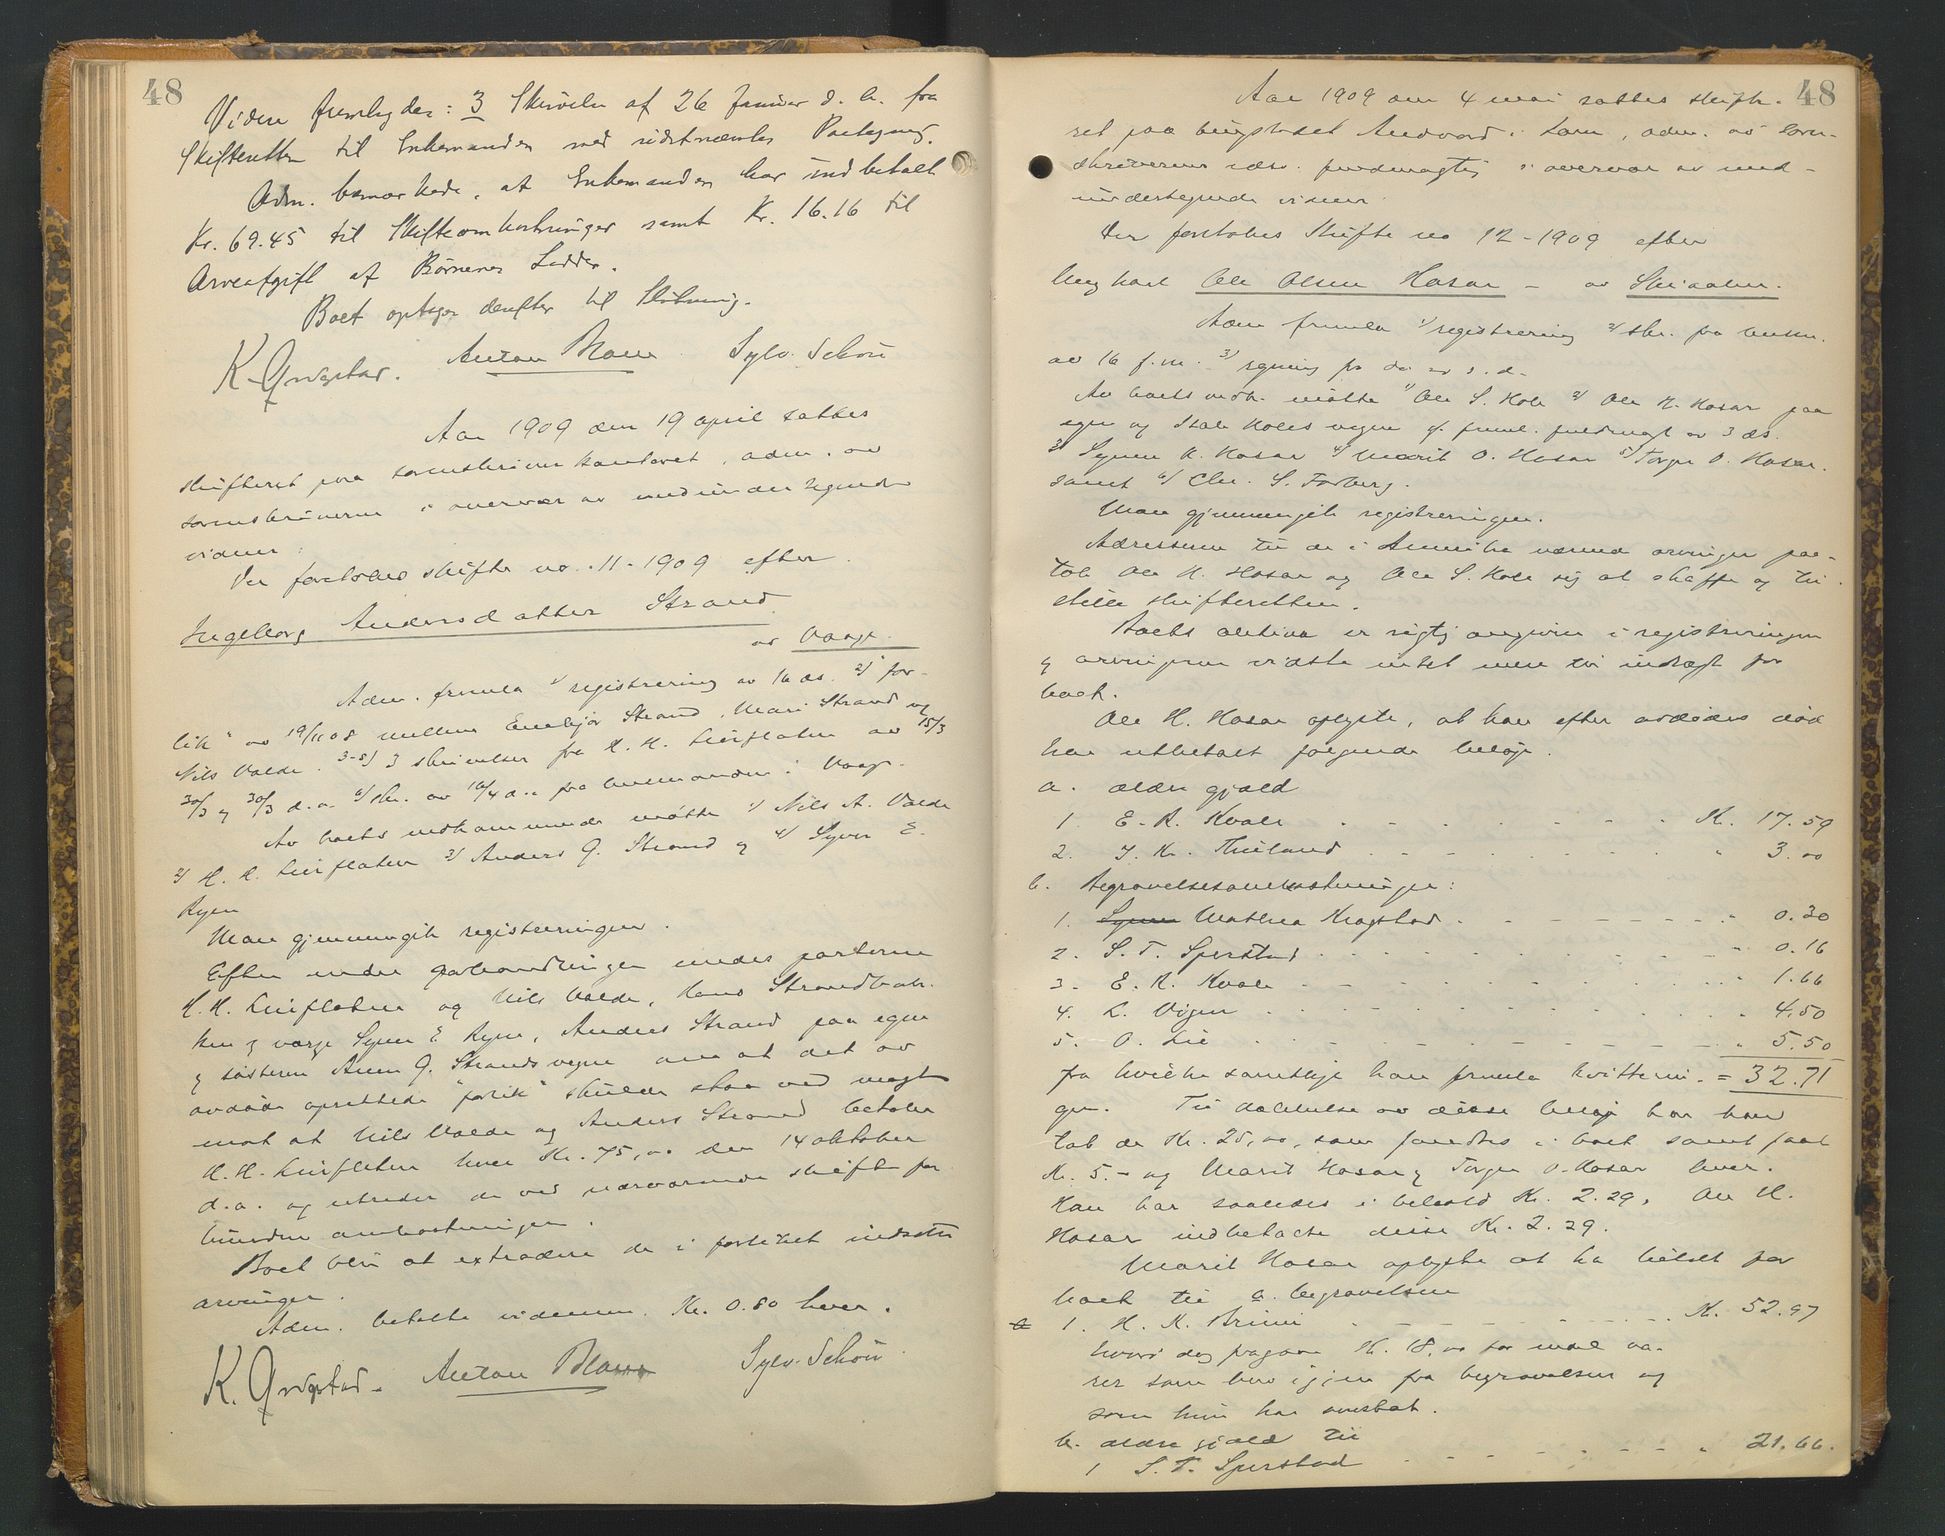 48
Videre fremlagdes: 3 Skrivelse af 26 Januar d. a. fra
Skifteretten til Enkemanden med sidstnævntes Paategning.
Adm. bemærkede, at Enkemanden har indbetalt
Kr. 69.45 til Skifteomkostninger samt Kr. 16.16 til
Arveafgift af Børnenes Lodder.
Boet optages derefter til Slutning.
K. Qvigstad. Anton Blom Sylv. Schou
Aar 1909 den 19 april sattes
skifteret paa sorenskriverkontoret, adm. av
sorenskriveren i overvær av medundertegnede
vidner:
Der foretokes skifte no. 11-1909 efter
Ingeborg Andersdatter Strand
av Vaage.
Adm. fremla 1/ registrering av 16 ds. 2/ "for-
lik" av 19/11 08 mellem Strand, Mari Strand og
Nils Valde. 3-5/ 3 skrivelser fra H. H. av 15/3
30/3 og 30/3 d.a. 6/ skr. av 10/4 d.a. fra lensmanden i Vaage.
Av boets vedkommende møtte 1/ Nils A. Valde
2/ H. H. 3/ Anders G. Strand og 4/ Syver E.
Ryen
Man gjennemgik registreringen.
Efter endte forhandlinger enedes parterne
H. H. og Nils Valde, Hans Strandbak-
ken og verge Syver E Ryen, Anders Strand paa egne
og søsteren Anne G. Strands vegne om at det av
avdøde oprettede "forlik" skulde staa ved magt
mot at Nils Valde og Anders Strand betaler
H. H. hver Kr. 75,00 den 14 oktober
d.a. og utreder de ved nærværende skifte for-
bundne omkostninger.
Boet blir at extradere de i forliket indsatte
arvinger.
Adm. betalte vidnerne Kr. 0.80 hver.
K. Qvigstad. Anton Blom Sylv. Schou.
48
Aar 1909 den 4 mai sattes skifte-
ret paa tingstedet Andvord i Lom, adm. av soren-
skriverens edsv. fuldmægtig i overvær av med-
undertegnede vidner
Der foretokes skifte no 12-1909 efter
Ungkarl Ole Olsen Hosar - av Skiaaker.
Adm fremla 1/ registrering 2/ skr. fra lensm.
av 16 f.m. 3/ regning fra do av s.d.
Av boets vedk. møtte 1/ Ole S. Hole 2/ Ole H. Hosar paa
egne og Hole's vegne efter freml. fuldmagt av 3 ds.
3/ Synøve K. Hosar 4/ Marit O. Hosar 5/ Torger O. Hosar.
samt 6/ Chr. S. Forberg.
Man gjennemgik registreringen.
Adresserne til de i Amerika værende arvinger paa-
tok Ole H. Hosar og Ole S. Hole sig at skaffe og til-
stille skifteretten.
Boets aktiva er rigtig angivne i registreringen
og arvingerne vidste intet mere til indtægt for
boet.
Ole H. Hosar oplyste, at han efter avdødes død
har utbetalt følgende beløp.
a. ældre gjæld
1 E. R. Kvale . - . - Kr. 17.59
2. J. Kr. - . - " 3.00
b. Begravelsesomkostninger:
1. Mathea Kragstad . - . - " 0.30
2. S. T. Sperstad . . . . " 0.16
3. E. R. Kvale - . - . " 1.66
4. L. Vigen . . . - . " 4.50
5. O. Lie . . - . - " 5.50
fra hvilke samtlige han fremla kvitterin- = 32.71
ger. Til dækkelse av disse beløp har han
tat de Kr. 25,00, som fandtes i boet samt faat
Kr. 5.- og Marit Hosar og Torger O. Hosar hver.
Han har saaledes i behold Kr. 2.29, Ole H.
Hosar indbetalte disse Kr. 2.29.
Marit Hosar oplyste at ha betalt for
boet til a. begravelsen
1. H. K. Brimi - . - . - . Kr. 52.97
hvori dog fragaar Kr. 18,00 for endel va-
rer som blev igjen fra begravelsen og
som hun har overtat.
b. ældre gjæld til
1 S. T. Sperstad . - . - " 21.66.